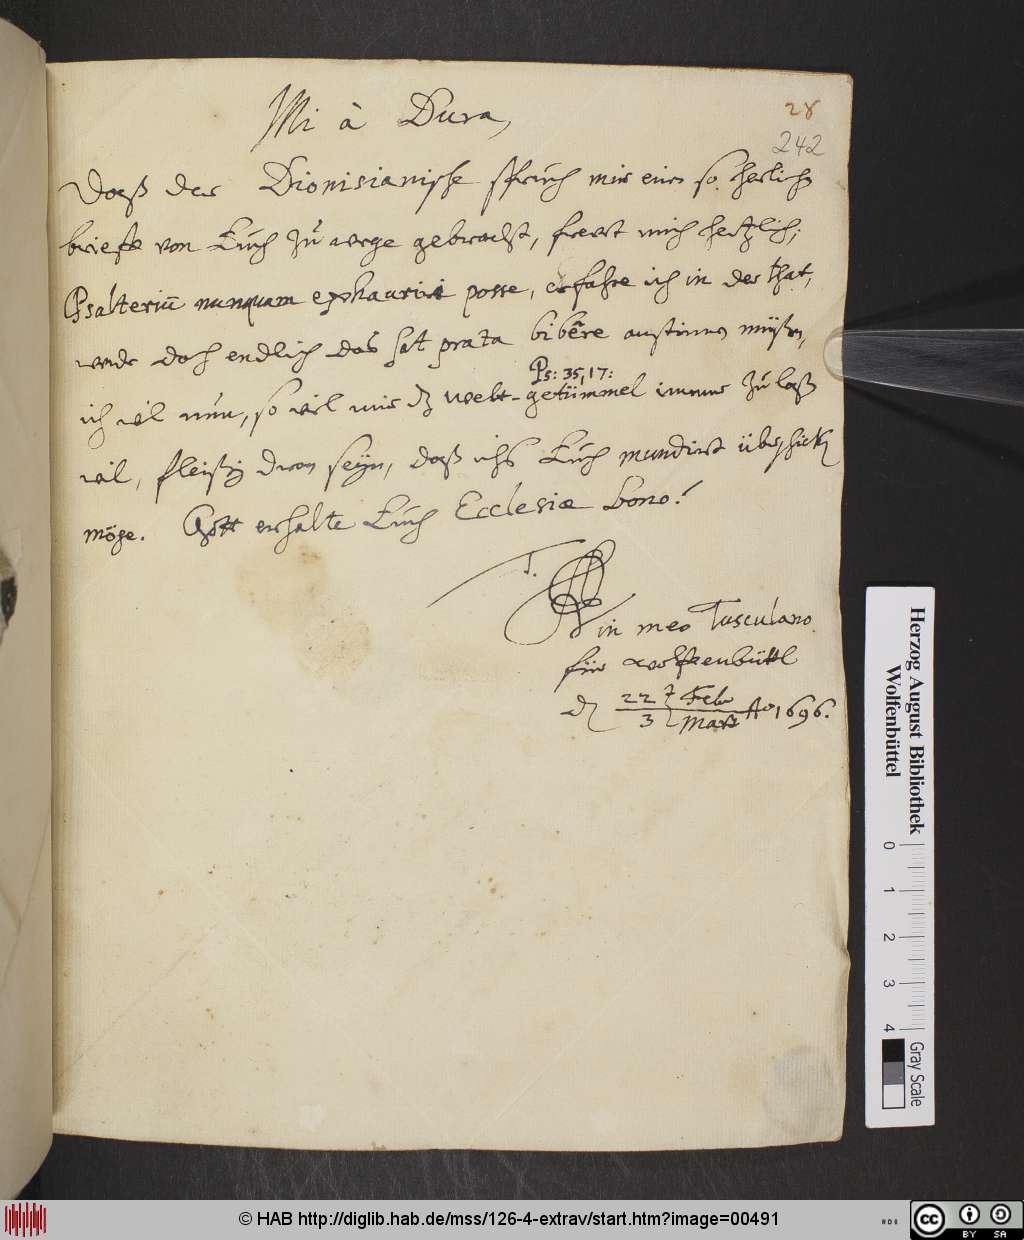 28
242
Mi à Dura,
Daß der Dionisianische spruch mir einen so herlichen
brieff von Euch zu wege gebracht, frewt mich hertzlich;
Psalteriū nunquam exhauriri posse, erfahre ich in der that,
werde doch endlich das sat prata bibêre anstimmen müßen,
ich wil nun, so viel mir dz welt-getümmel immer zu laßen
Ps: 35, 17:
wil, fleißig dran seyn, daß ichs Euch mundirt überschicken
möge. Gott erhalte Euch Ecclesiæ bono!
T.
in meo Tusculano
für Wolfenbüttl
d 22 Febr
3 Mart Ao 1696.
Herzog August Bibliothek
Wolfenbüttel
0 1 2 3 4
Gray Scale
© HAB http://diglib.hab.de/mss/126-4-extrav/start.htm?image=00491
cc BY SA